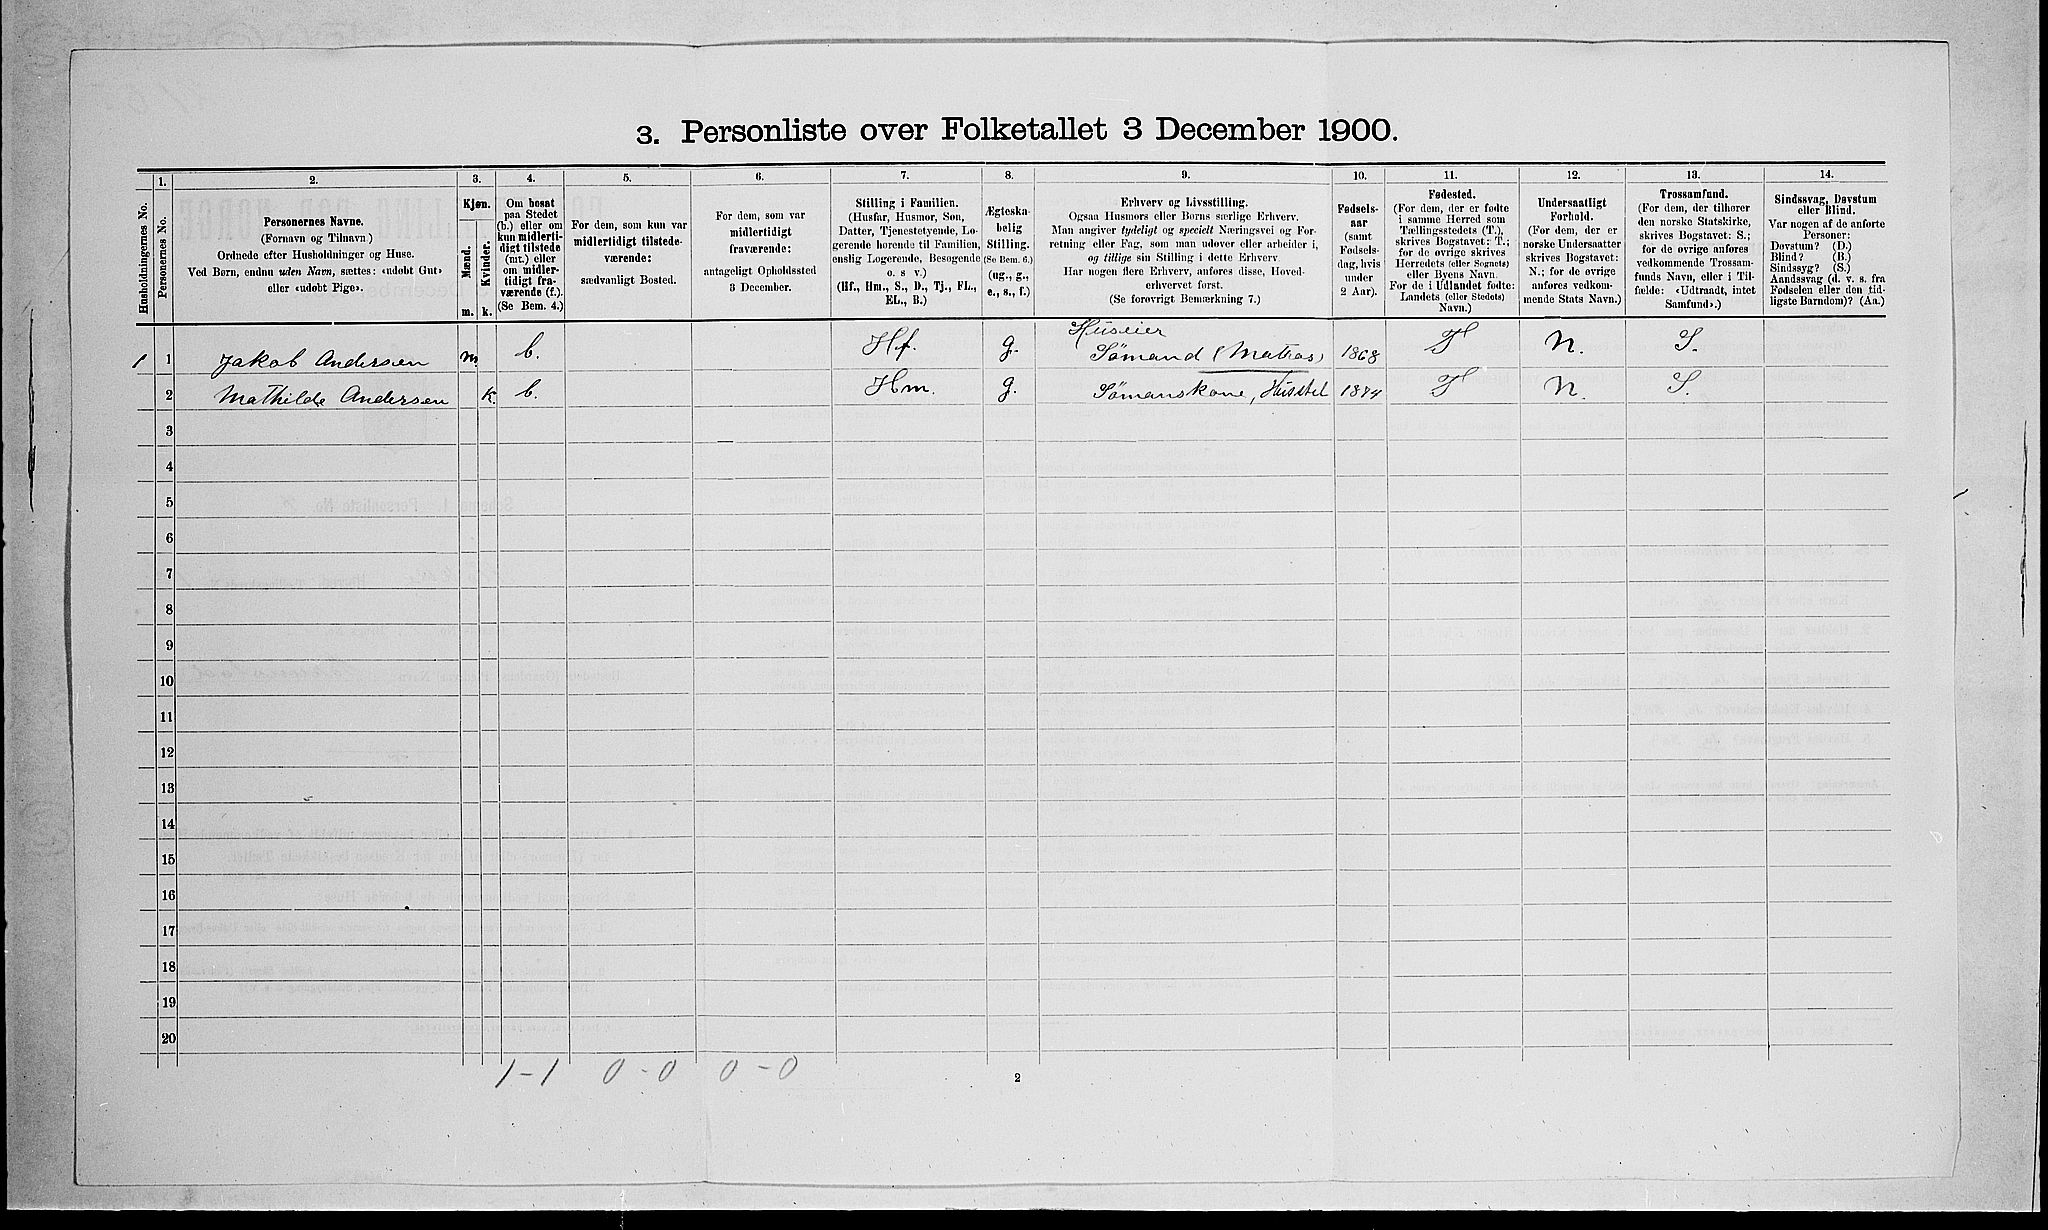 3. Personliste over Folketallet 3 December 1900.
1. 2. 3. 4. 5. 6. 7. 8. 9. 10. 11. 12. 13. 14.
Husholdningernes No.
Personernes No.
Personernes Navne.
(Fornavn og Tilnavn)
Ordnede efter Husholdninger og Huse.
Ved Børn, endnu uden Navn, sættes: «udøbt Gut»
eller «udøbt Pige».
Kjøn.
Mænd.
Kvinder.
m. k.
Om bosat
paa Stedet
(b.) eller om
kun midlerti-
digt tilstede
(mt.) eller
om midler-
tidigt fra-
værende (f.).
(Se Bem. 4.)
For dem, som kun var
midlertidigt tilstede-
værende:
sædvanligt Bosted.
For dem, som var
midlertidigt
fraværende:
antageligt Opholdssted
3 December.
Stilling i Familien.
(Husfar, Husmor, Søn,
Datter, Tjenestetyende, Lo-
gerende hørende til Familien,
enslig Logerende, Besøgende
o. s v.)
(Hf., Hm., S., D., Tj., FL.,
EL., B.)
Ægteska-
belig
Stilling.
(Se Bem. 6.)
(ug., g.,
e., s., f.)
Erhverv og Livsstilling.
Ogsaa Husmors eller Børns særlige Erhverv.
Man angiver tydeligt og specielt Næringsvei og For-
retning eller Fag, som man udøver eller arbeider i,
og tillige sin Stilling i dette Erhverv
Har nogen flere Erhverv, anføres disse, Hoved-
erhvervet først.
(Se forøvrigt Bemærkning 7.)
Fødsels-
aar
(samt
Fødsels-
dag, hvis
under
2 Aar).
Fødested.
(For dem, der er fødte
i samme Herred som
Tællingsstedets (T.),
skrives Bogstavet: T.;
for de øvrige skrives
Herredets (eller Sognets)
eller Byens Navn.
For de i Udlandet fødte:
Landets (eller Stedets)
Navn.)
Undersaatligt
Forhold.
(For dem, der er
norske Undersaatter
skrives Bogstavet:
N.; for de øvrige
anføres vedkom-
mende Stats Navn.)
Trossamfund.
(For dem, der tilhører
den norske Statskirke,
skrives Bogstavet: S.;
for de øvrige anføres
vedkommende Trossam-
funds Navn, eller i Til-
fælde: «Udtraadt, intet
Samfund».)
Sindssvag, Døvstum
eller Blind.
Var nogen af de anførte
Personer:
Døvstum? (D.)
Blind? (B.)
Sindssyg? (S.)
Aandssvag (d. v. s. fra
Fødselen eller den tid-
ligste Barndom)? (Aa.)
Huseier
1 1 Jakob Andersen m b. Hf. g. Sømand (Matros) 1868 T N. S.
2 Mathilde Andersen k. b. Hm. g. Sømanskone, Husstel 1874 T N. S.
3
4
5
6
7
8
9
10
11
12
13
14
15
16
17
18
19
20
1-1 0-0 0-0
2